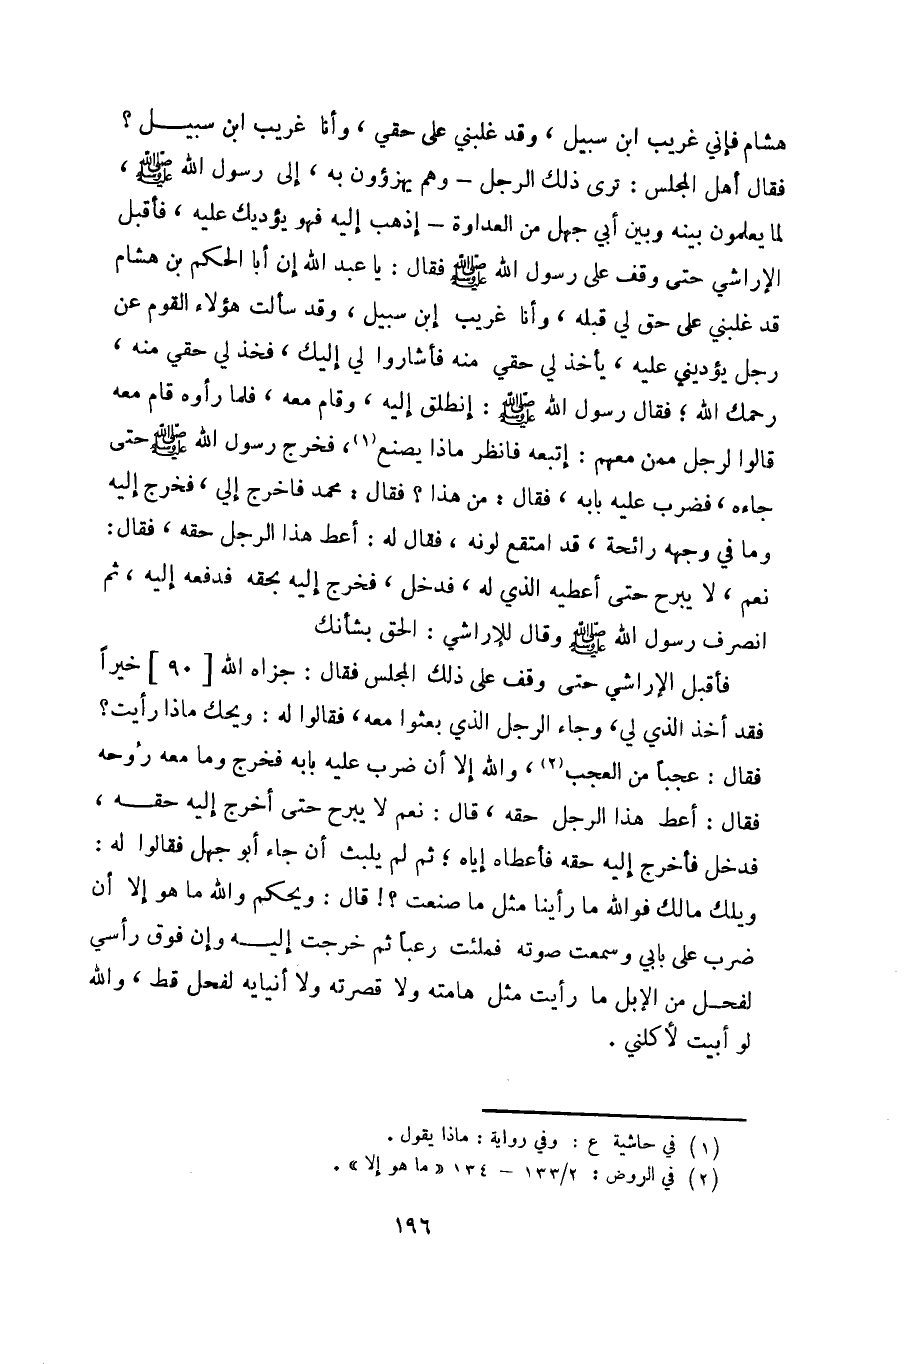 هشام فإني غريب ابن سبيل ، وقد غلبني على حقي ، وأنا غريب ابن سبيـــل ؟
فقال أهل المجلس : ترى ذلك الرجل – وهم يهزؤون به ، إلى رسول الله ﷺ ،
لما يعلمون بينه وبين أبي جهل من العداوة – إذهب إليه فهو يؤديك عليه ، فأقبل
الإراشي حتى وقف على رسول الله ﷺ فقال : يا عبد الله إن أبا الحكم بن هشام
قد غلبني على حق لي قبله ، وأنا غريب إبن سبيل ، وقد سألت هؤلاء القوم عن
رجل يؤديني عليه ، يأخذ لي حقي منه فأشاروا لي إليك ، فخذ لي حقي منه ،
رحمك الله ؛ فقال رسول الله ﷺ : إنطلق إليه ، وقام معه ، فلما رأوه قام معه
قالوا لرجل ممن معهم : إتبعه فانظر ماذا يصنع(١)، فخرج رسول الله ﷺ حتى
جاءه ، فضرب عليه بابه ، فقال : من هذا ؟ فقال : محمد فاخرج إلي ، فخرج إليه
وما في وجهه رائحة ، قد امتقع لونه ، فقال له : أعط هذا الرجل حقه ، فقال:
نعم ، لا يبرح حتى أعطيه الذي له ، فدخل ، فخرج إليه بحقه فدفعه إليه ، ثم
انصرف رسول الله ﷺ وقال للإراشي : الحق بشأنك
فأقبل الإراشي حتى وقف على ذلك المجلس فقال : جزاه الله [ ٩٠ ] خيراً
فقد أخذ الذي لي، وجاء الرجل الذي بعثوا معه، فقالوا له : ويحك ماذا رأيت؟
فقال : عجباً من العجب(٢) ، والله إلا أن ضرب عليه بابه فخرج وما معه رُوحه
فقال : أعط هذا الرجل حقه ، قال : نعم لا يبرح حتى أخرج إليه حقـــه ،
فدخل فأخرج إليه حقه فأعطاه إياه ؛ ثم لم يلبث أن جاء أبو جهل فقالوا له :
ويلك مالك فوالله ما رأينا مثل ما صنعت ؟! قال : ويحكم والله ما هو إلا أن
ضرب على بابي وسمعت صوته فملئت رعباً ثم خرجت إليـــه وإن فوق رأسي
لفحـل من الإبل ما رأيت مثل هامته ولا قصرته ولا أنيابه لفحل قط ، والله
لو أبيت لأكلني .
(١) في حاشية ع : وفي رواية : ماذا يقول .
(٢) في الروض : ١٣٣/٢ – ١٣٤ « ما هو إلا » .
١٩٦